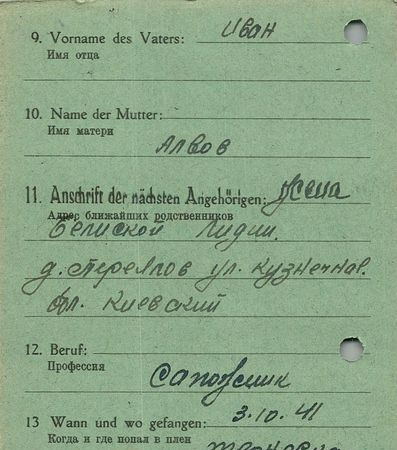 9. Vorname des Vaters: Иван
Имя отца
10. Name der Mutter:
Имя матери
Алвов
11. Anschrift der nächsten Angehörigen: Жена
Адрес ближайших родственников
Лидии
ул. Кузнечная.
Киевский
12. Beruf:
Профессия
Сапожник
13 Wann und wo gefangen: 3.10.41
Когда и где попал в плен